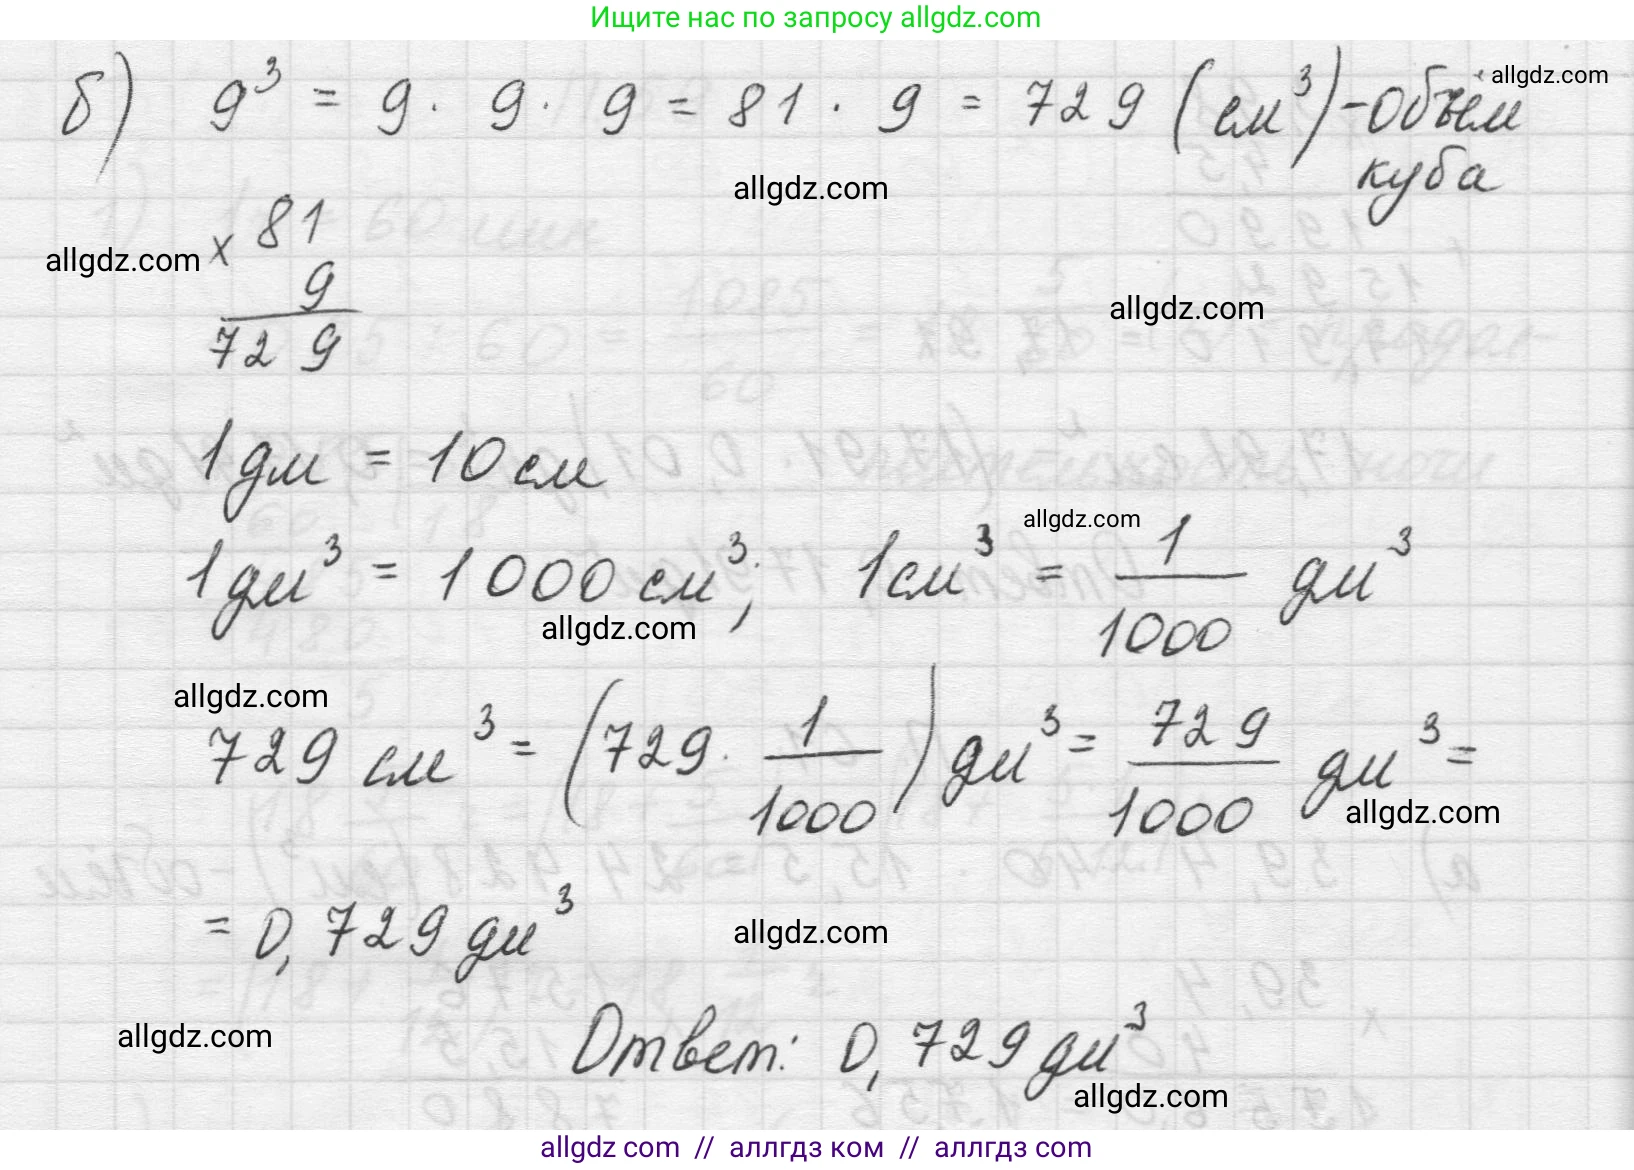 Ищите нас по запросу allgdz.com
б) 9³ = 9 · 9 · 9 = 81 · 9 = 729 (см³) - объём
куба
allgdz.com
allgdz.com
× 81
allgdz.com
9
allgdz.com
729
1 дм = 10 см
allgdz.com
1 дм³ = 1000 см³; 1 см³ = 1/1000 дм³
allgdz.com
allgdz.com
729 см³ = (729 · 1/1000) дм³ = 729/1000 дм³ =
allgdz.com
= 0,729 дм³
allgdz.com
allgdz.com
Ответ: 0,729 дм³
allgdz.com
allgdz com // аллгдз ком // allgdz.com